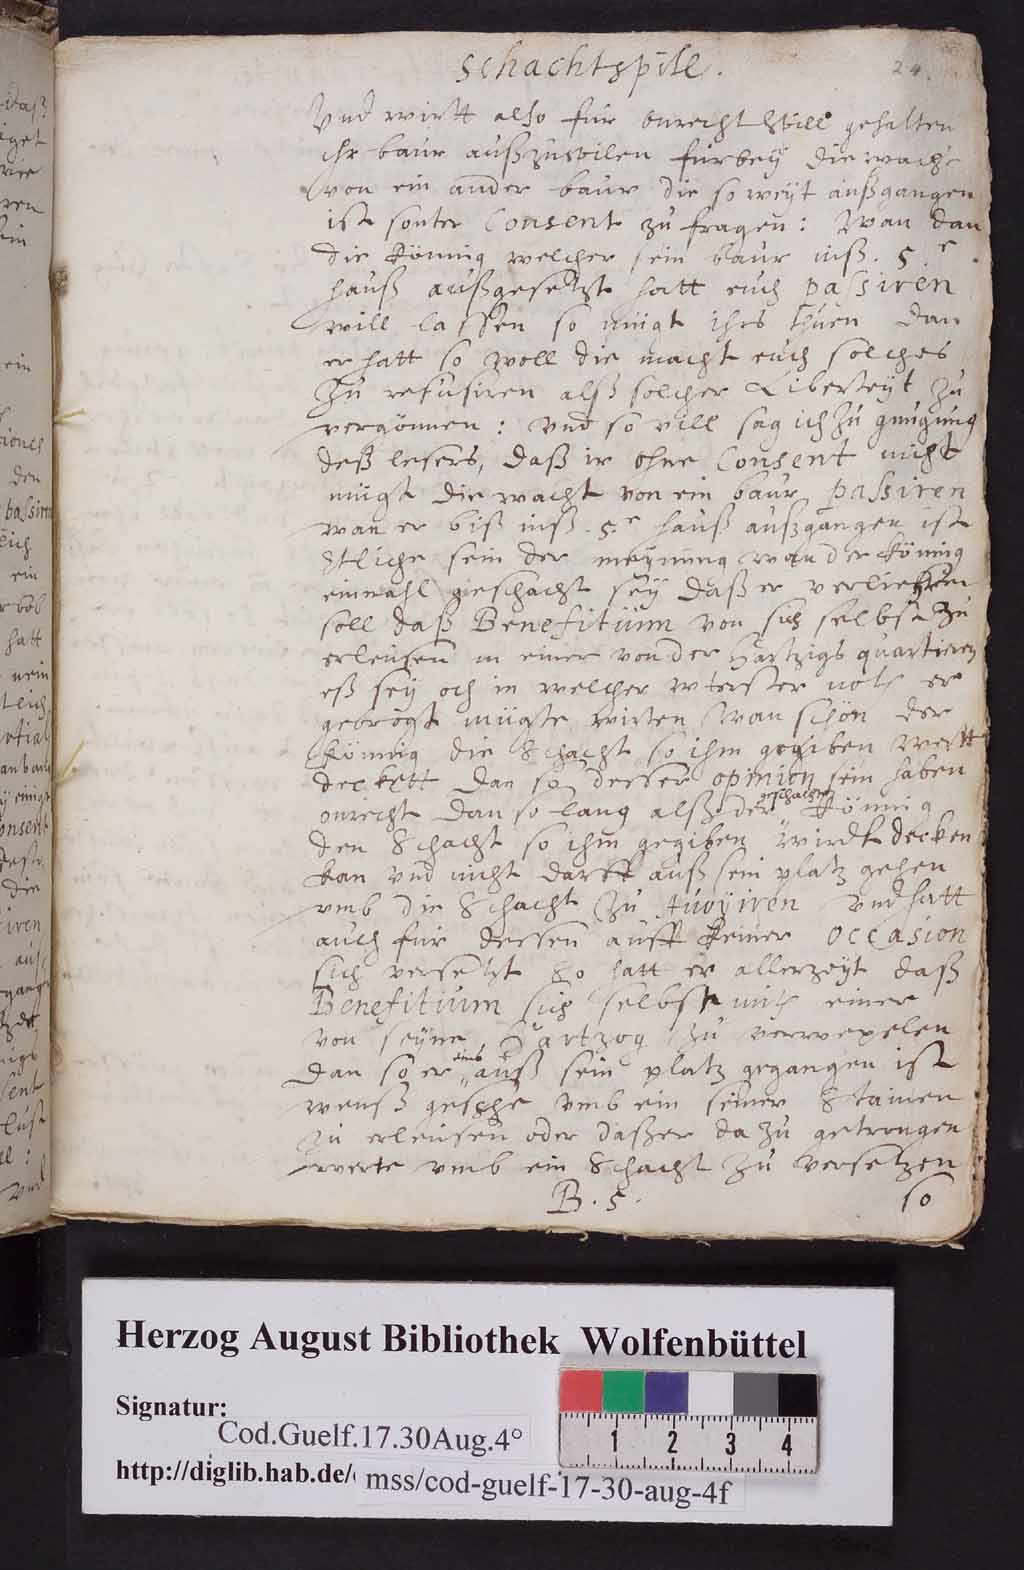 Schachtspill.
24.
Vnd wirtt also fur onrecht still gehalten
ihr baur außzuspilen fürbeÿ die wacht
von ein ander baur die so weÿt außgangen
ist sonter Consent zu fragen: Wan dan
die Könnig welcher sein baur inß .5.e
hauß außgesetzt hatt euch passiren
will lassen so mügt ihrs thuen dan
er hatt so woll die macht euch solches
Zu refusiren alß solcher Liberteÿt zu
vergönnen: Vnd so vill sag ich zu gnugung
deß lesers, daß ir ohne Consent nicht
mügt die wacht von ein baur passiren
wan er biß inß .5e hauß außgangen ist
Etliche sein der meÿnung wan der Könnig
einmahl geschacht seÿ daß er verliehren
soll daß Benefitium von sich selbst zu
erleusen in einer von der Hartzigs quartieren
eß seÿ och in welcher uterster noth er
gebrögt mügte wirten Wan schon der
Könnig die Schacht so ihm gegiben wertt
deckett dan so desser opinion sein haben
onrecht dan so lang alß der geschachte Könnig
den Schacht so ihm gegiben wirdt decken
kan vnd nicht darff auß sein platz gehen
vmb die Schacht zu fuoÿiren vnd hatt
auch fur dessen auff keiner occasion
sich versetzt So hatt er allerzeÿt daß
Benefitium sich selbst mit einer
von seÿne Hartzog zu verwexelen
dan so er eins auß sein platz gegangen ist
wenß geschehe vmb ein seiner Stainen
zu erleusen oder daß er da zu getrongen
werte vmb ein Schacht zu versetzen
B. 5.
so
Herzog August Bibliothek Wolfenbüttel
Signatur:
Cod.Guelf.17.30Aug.4°
http://diglib.hab.de/
mss/cod-guelf-17-30-aug-4f
1 2 3 4